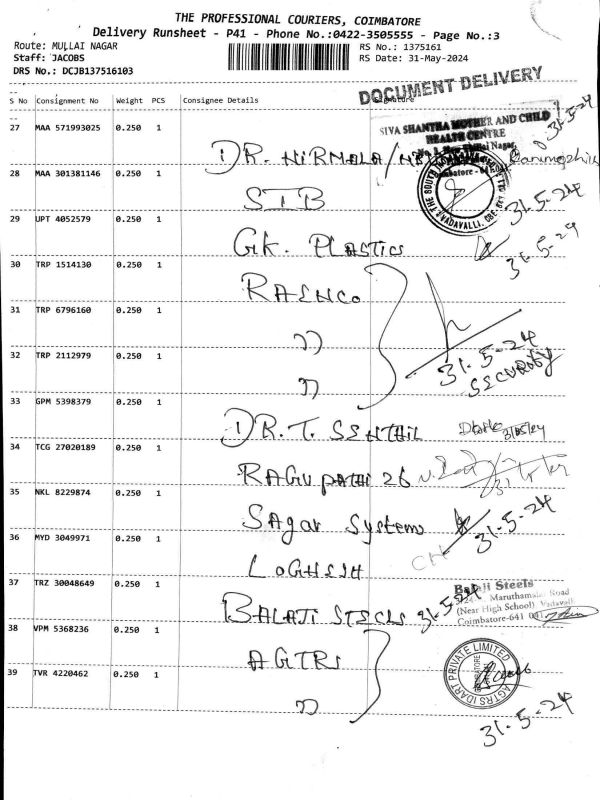 THE PROFESSIONAL COURIERS, COIMBATORE
Delivery Runsheet - P41 - Phone No.:0422-3505555 - Page No.:3
Route: MULLAI NAGAR
RS No.: 1375161
Staff: JACOBS
RS Date: 31-May-2024
DRS No.: DCJB137516103
DOCUMENT DELIVERY
S No Consignment No Weight PCS Consignee Details Signature
31-5-24
SIVA SHANTHA MOTHER AND CHILD
HEALTH CENTRE
27 MAA 571993025 0.250 1
DR. NIRMALA
28 MAA 301381146 0.250 1
STB
THE SOUTH
VADAVALLI, CBE
31-5-24
29 UPT 4052579 0.250 1
GK. PLASTICS
31-5-24
30 TRP 1514130 0.250 1
RAENCO
31 TRP 6796160 0.250 1
))
31-5-24
32 TRP 2112979 0.250 1
SECURITY
))
33 GPM 5398379 0.250 1
DR. T. SENTHIL
34 TCG 27020189 0.250 1
RAGUPATHI 26
35 NKL 8229874 0.250 1
Sagar Systems
31-5-24
36 MYD 3049971 0.250 1
LOGHESH
37 TRZ 30048649 0.250 1
BALAJI STEELS
31-5-24
Balaji Steels
Maruthamalai Road
(Near High School) Vadavalli
Coimbatore-641 041
38 VPM 5368236 0.250 1
AGTRS
AGTRS IDART PRIVATE LIMITED
COIMBATORE
39 TVR 4220462 0.250 1
))
31-5-24